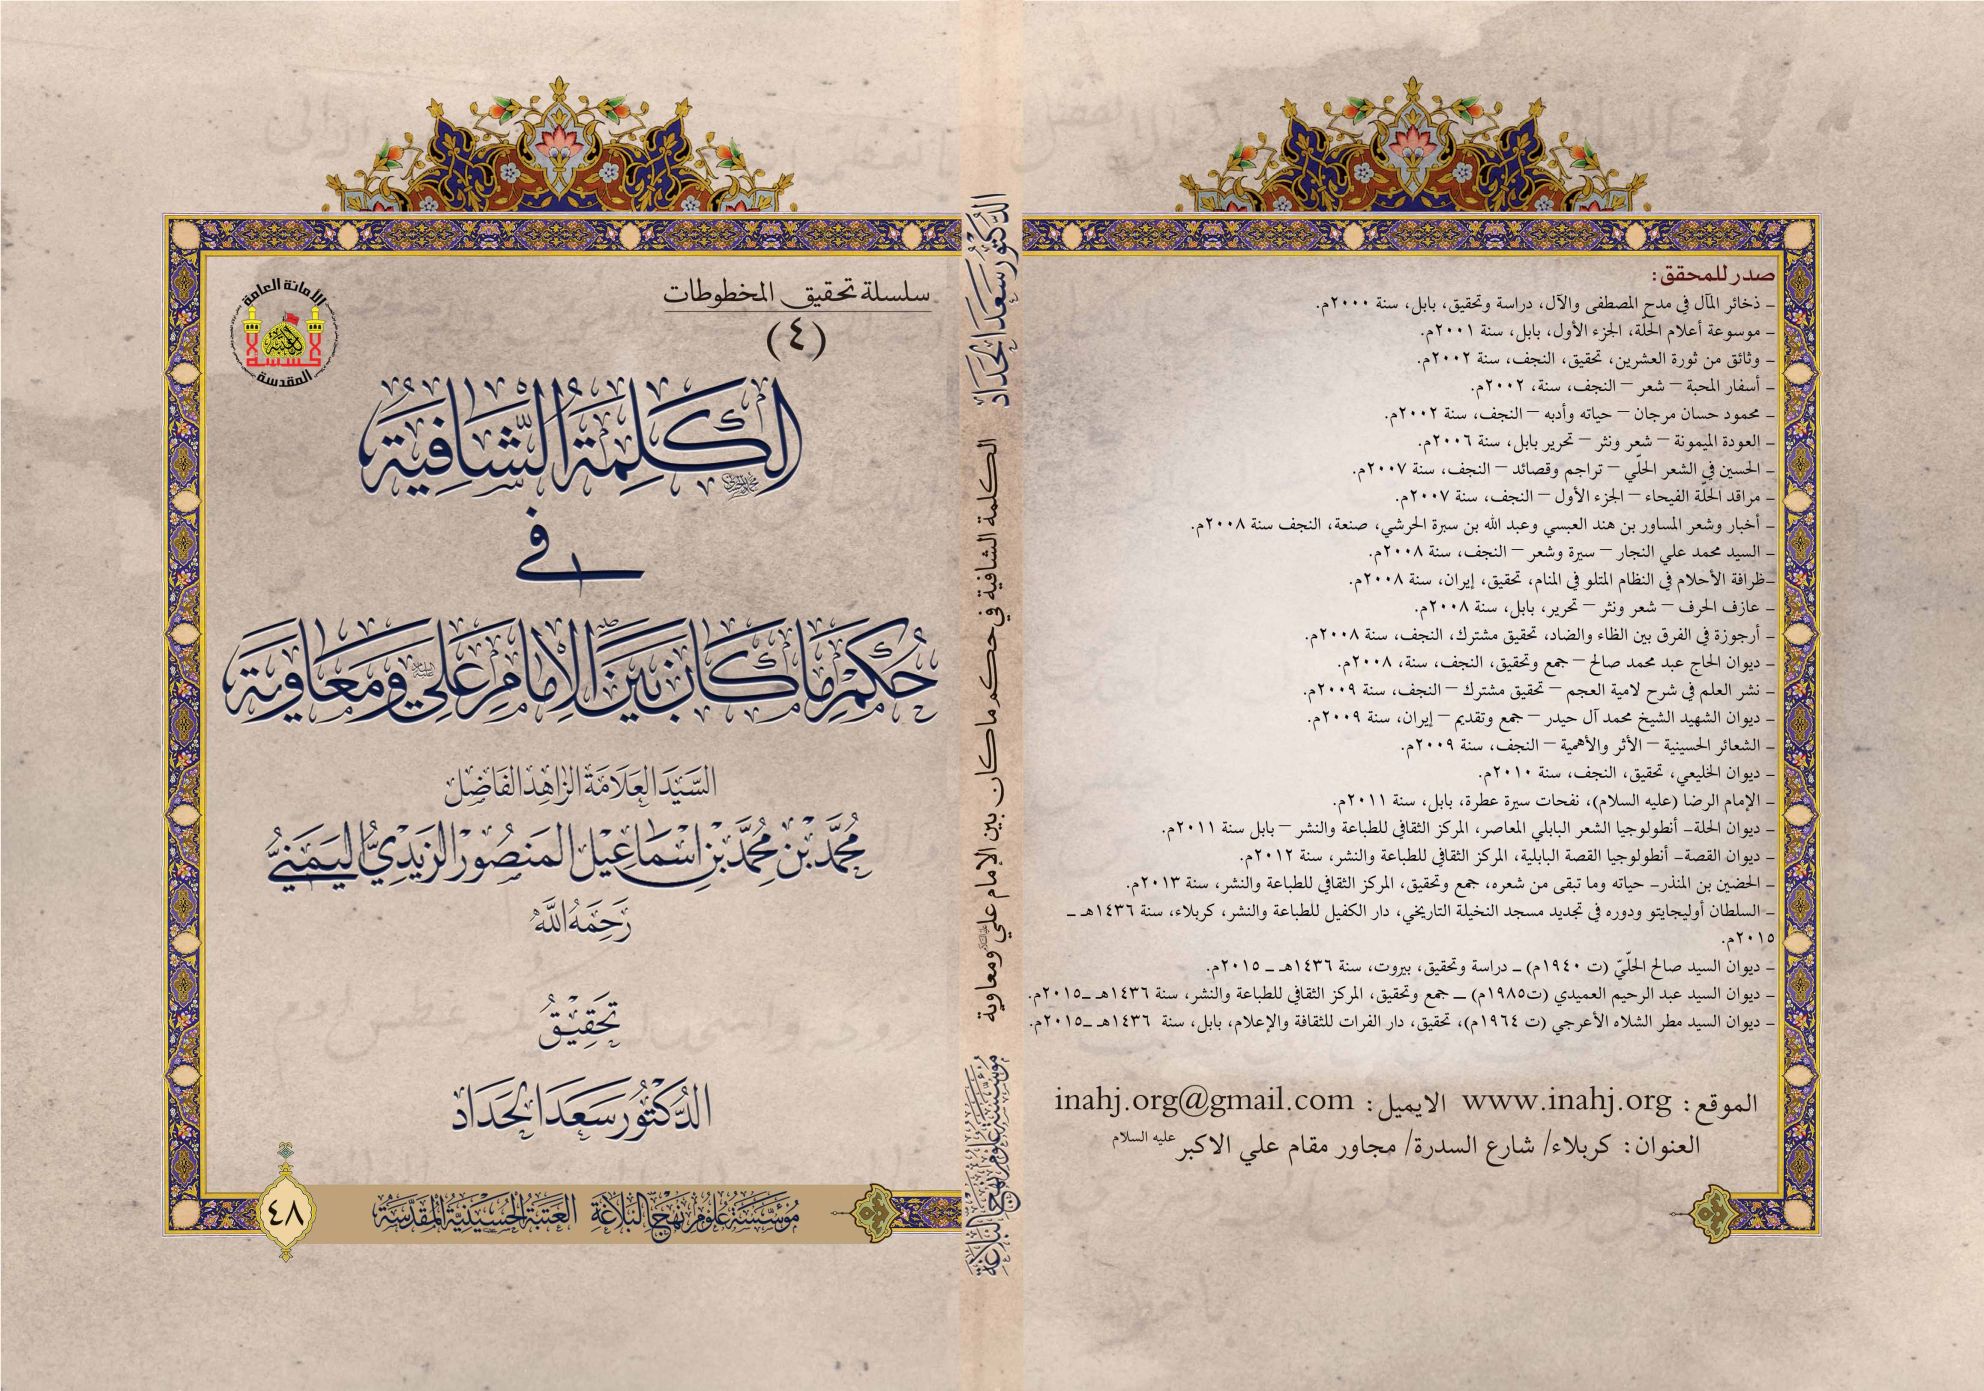 الأمانة العامة
المقدسة
سلسلة تحقيق المخطوطات
(٤)
الكَلِمَةُ الشَّافِيَةُ
في
حُكْمِ مَا كَانَ بَيْنَ الإِمَامِ عَلِيٍّ وَمُعَاوِيَةَ
السَّيِّدِ العَلَّامَةِ الزَّاهِدِ الفَاضِلِ
مُحَمَّد بْن مُحَمَّد بْنِ إِسْمَاعِيل المَنصُور الزَيْدِيُّ اليَمَنِيُّ
رَحِمَهُ اللَّهُ
تَحْقِيْقُ
الدُّكْتُور سَعَد الحَدَاد
مُؤَسَّسَةُ عُلُومِ نَهْجِ البَلَاغَةِ العَتَبَةُ الحُسَيْنِيَّةُ المُقَدَّسَةُ
٤٨
الدُّكْتُور سَعَد الحَدَاد
الكلمة الشافية في حكم ما كان بين الإمام علي ومعاوية
مُؤَسَّسَةُ عُلُومِ نَهْجِ البَلَاغَةِ
صدر للمحقق:
- ذخائر المآل في مدح المصطفى والآل، دراسة وتحقيق، بابل، سنة ٢٠٠٠م.
- موسوعة أعلام الحلّة، الجزء الأول، بابل، سنة ٢٠٠١م.
- وثائق من ثورة العشرين، تحقيق، النجف، سنة ٢٠٠٢م.
- أسفار المحبة – شعر – النجف، سنة، ٢٠٠٢م.
- محمود حسان مرجان – حياته وأدبه – النجف، سنة ٢٠٠٢م.
- العودة الميمونة – شعر ونثر – تحرير بابل، سنة ٢٠٠٦م.
- الحسين في الشعر الحلّي – تراجم وقصائد – النجف، سنة ٢٠٠٧م.
- مراقد الحلّة الفيحاء – الجزء الأول – النجف، سنة ٢٠٠٧م.
- أخبار وشعر المساور بن هند العبسي وعبد الله بن سبرة الحرشي، صنعة، النجف سنة ٢٠٠٨م.
- السيد محمد علي النجار – سيرة وشعر – النجف، سنة ٢٠٠٨م.
-ظرافة الأحلام في النظام المتلو في المنام، تحقيق، إيران، سنة ٢٠٠٨م.
- عازف الحرف – شعر ونثر – تحرير، بابل، سنة ٢٠٠٨م.
- أرجوزة في الفرق بين الظاء والضاد، تحقيق مشترك، النجف، سنة ٢٠٠٨م.
- ديوان الحاج عبد محمد صالح – جمع وتحقيق، النجف، سنة، ٢٠٠٨م.
- نشر العلم في شرح لامية العجم – تحقيق مشترك – النجف، سنة ٢٠٠٩م.
- ديوان الشهيد الشيخ محمد آل حيدر – جمع وتقديم – إيران، سنة ٢٠٠٩م.
- الشعائر الحسينية – الأثر والأهمية – النجف، سنة ٢٠٠٩م.
- ديوان الخليعي، تحقيق، النجف، سنة ٢٠١٠م.
- الإمام الرضا (عليه السلام)، نفحات سيرة عطرة، بابل، سنة ٢٠١١م.
- ديوان الحلة- أنطولوجيا الشعر البابلي المعاصر، المركز الثقافي للطباعة والنشر – بابل سنة ٢٠١١م.
- ديوان القصة- أنطولوجيا القصة البابلية، المركز الثقافي للطباعة والنشر، سنة ٢٠١٢م.
- الحضين بن المنذر- حياته وما تبقى من شعره، جمع وتحقيق، المركز الثقافي للطباعة والنشر، سنة ٢٠١٣م.
- السلطان أوليجايتو ودوره في تجديد مسجد النخيلة التاريخي، دار الكفيل للطباعة والنشر، كربلاء، سنة ١٤٣٦هـ ـ
٢٠١٥م.
- ديوان السيد صالح الحلّيّ (ت ١٩٤٠م) ـ دراسة وتحقيق، بيروت، سنة ١٤٣٦هـ ـ ٢٠١٥م.
- ديوان السيد عبد الرحيم العميدي (ت١٩٨٥م) ـ جمع وتحقيق، المركز الثقافي للطباعة والنشر، سنة ١٤٣٦هـ ـ٢٠١٥م.
- ديوان السيد مطر الشلاه الأعرجي (ت ١٩٦٤م)، تحقيق، دار الفرات للثقافة والإعلام، بابل، سنة ١٤٣٦هـ ـ٢٠١٥م.
الموقع: www.inahj.org الايميل: inahj.org@gmail.com
العنوان: كربلاء/ شارع السدرة/ مجاور مقام علي الاكبر عليه السلام